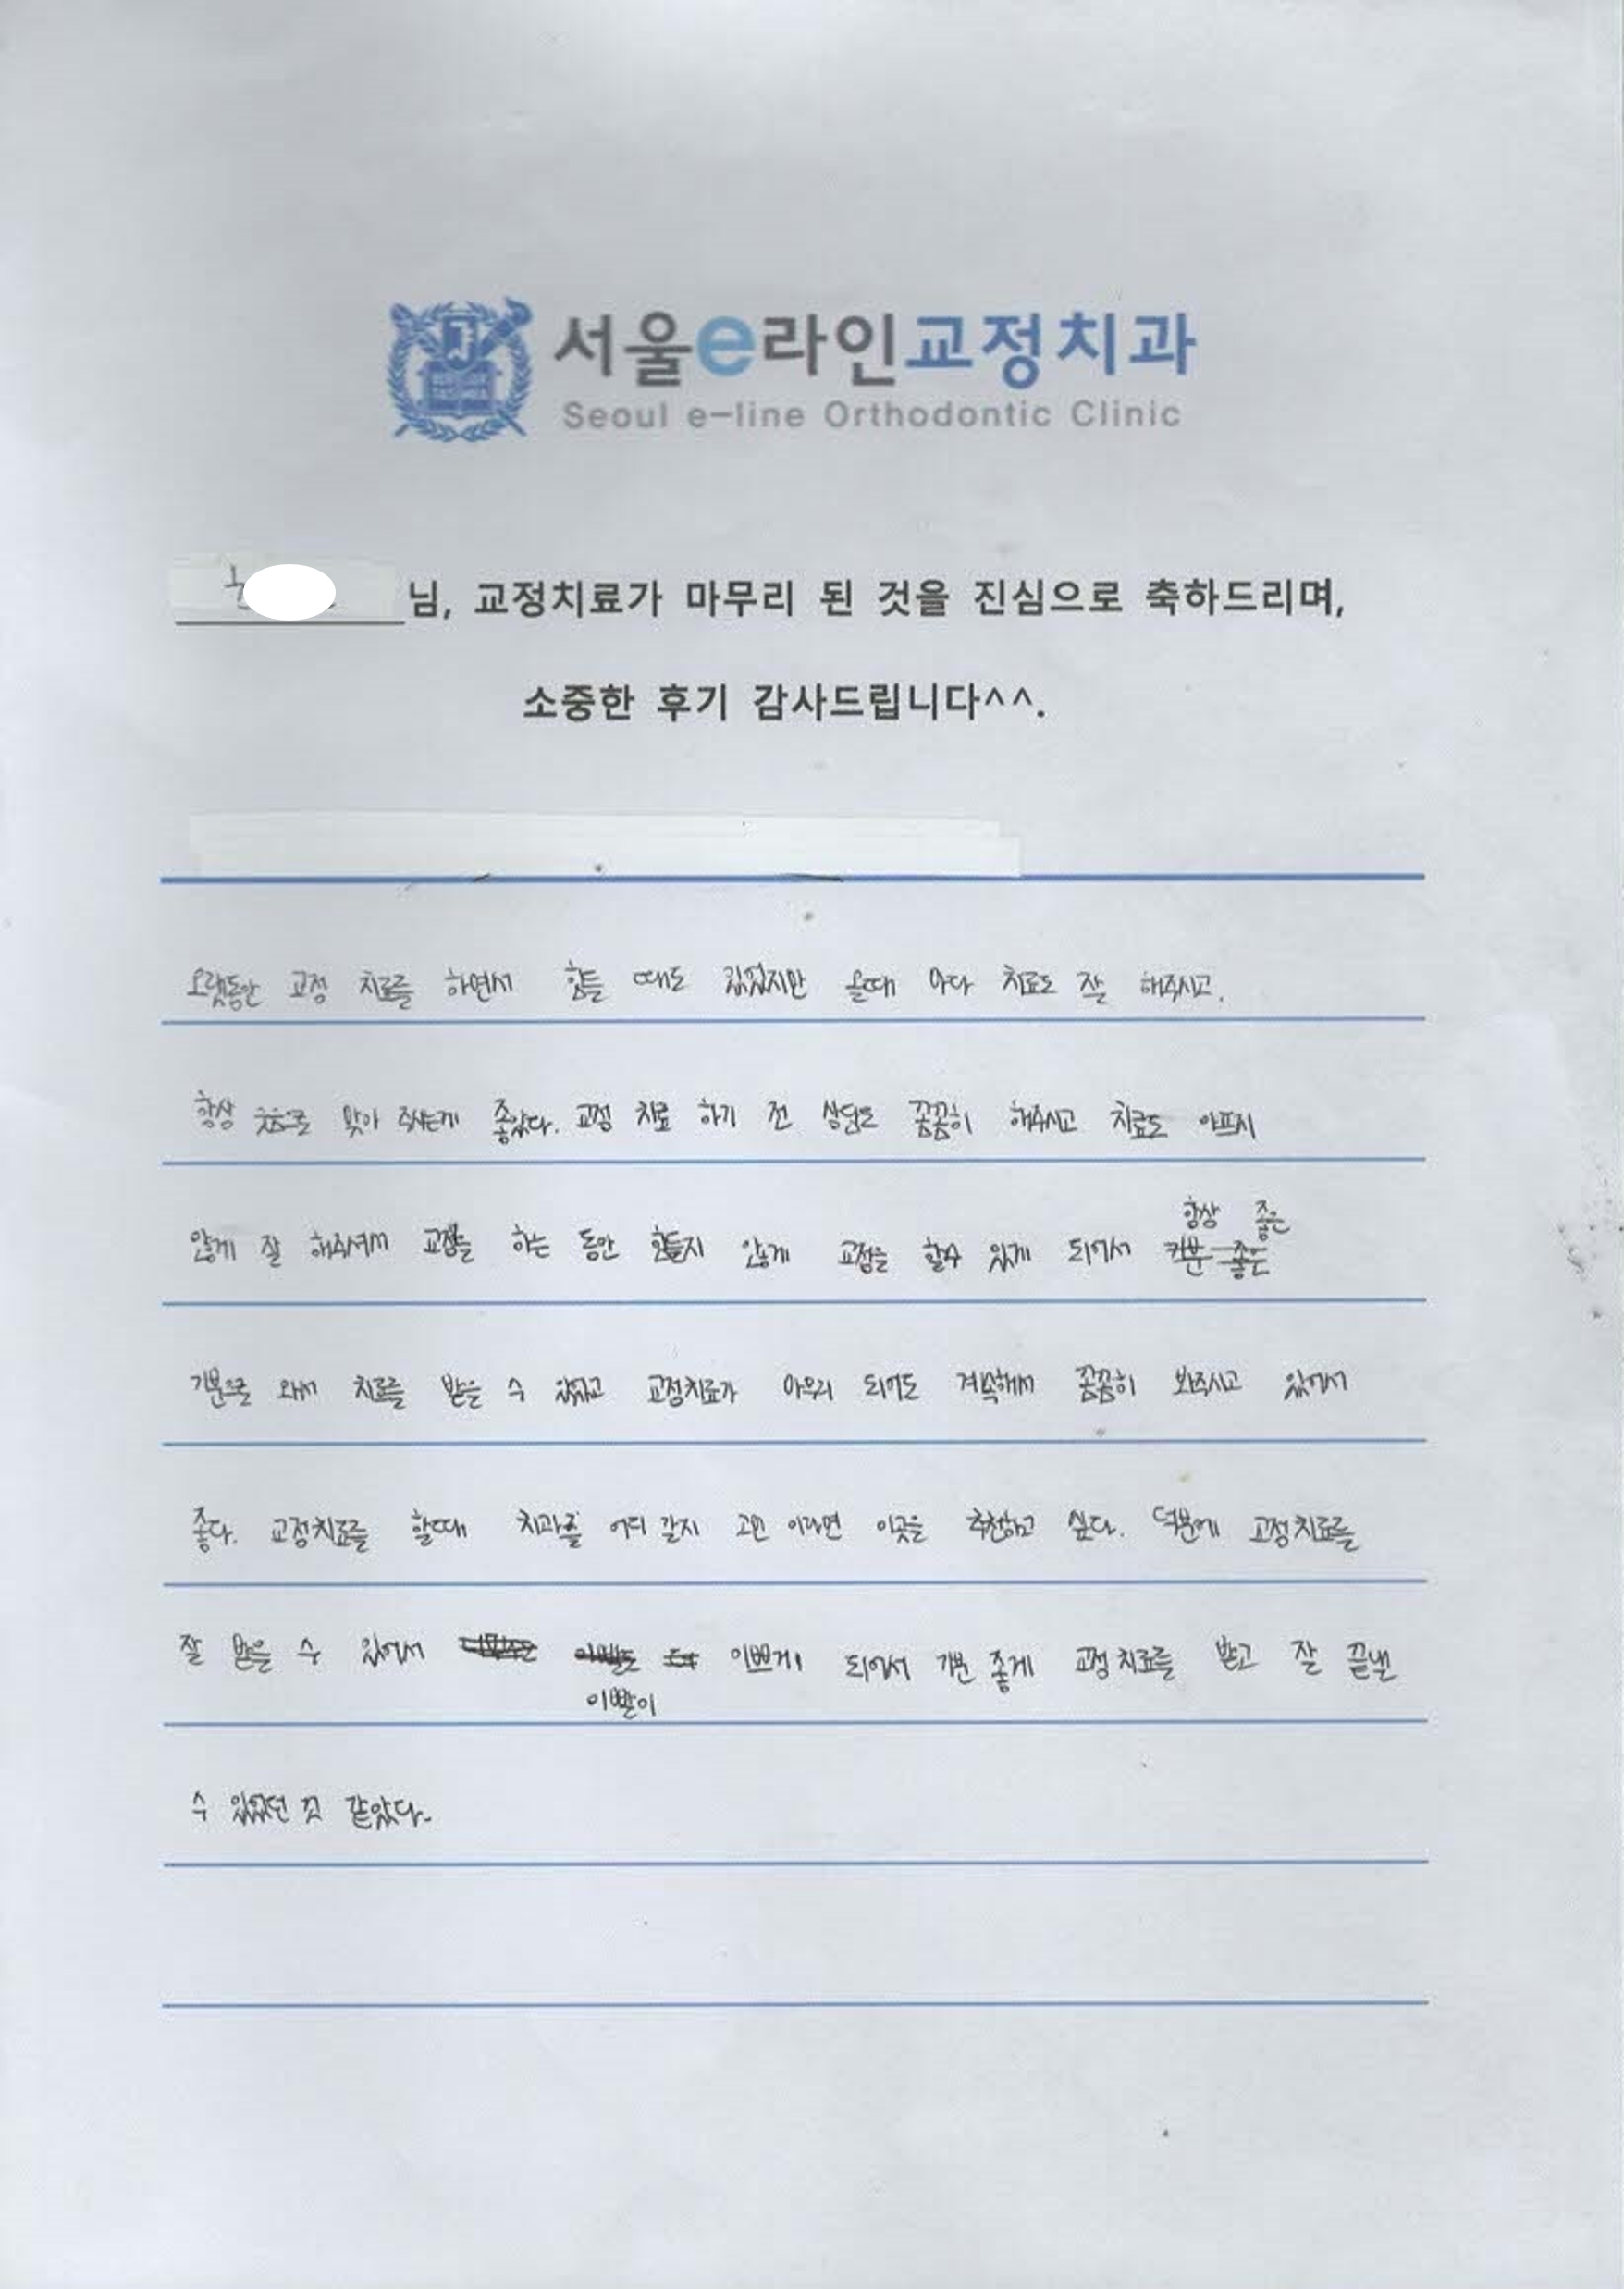 서울e라인교정치과
Seoul e-line Orthodontic Clinic
님, 교정치료가 마무리 된 것을 진심으로 축하드리며,
소중한 후기 감사드립니다^^.
오랫동안 교정 치료를 하면서 힘들 때도 있었지만 올때 마다 치료도 잘 해주시고.
항상 웃음으로 맞아 주시는게 좋았다. 교정 치료 하기 전 상담도 꼼꼼히 해주시고 치료도 아프지
항상 좋은
않게 잘 해주셔서 교정을 하는 동안 힘들지 않게 교정을 할수 있게 되어서 기분 좋은
기분으로 와서 치료를 받을 수 있었고 교정치료가 마무리 되어도 계속해서 꼼꼼히 봐주시고 있어서
좋다. 교정치료를 할때 치과를 어디 갈지 고민 이라면 이곳을 추천하고 싶다. 덕분에 교정치료를
잘 받을 수 있어서 이쁘게 되어서 기분 좋게 교정치료를 받고 잘 끝낼
이빨이
수 있었던 것 같았다.